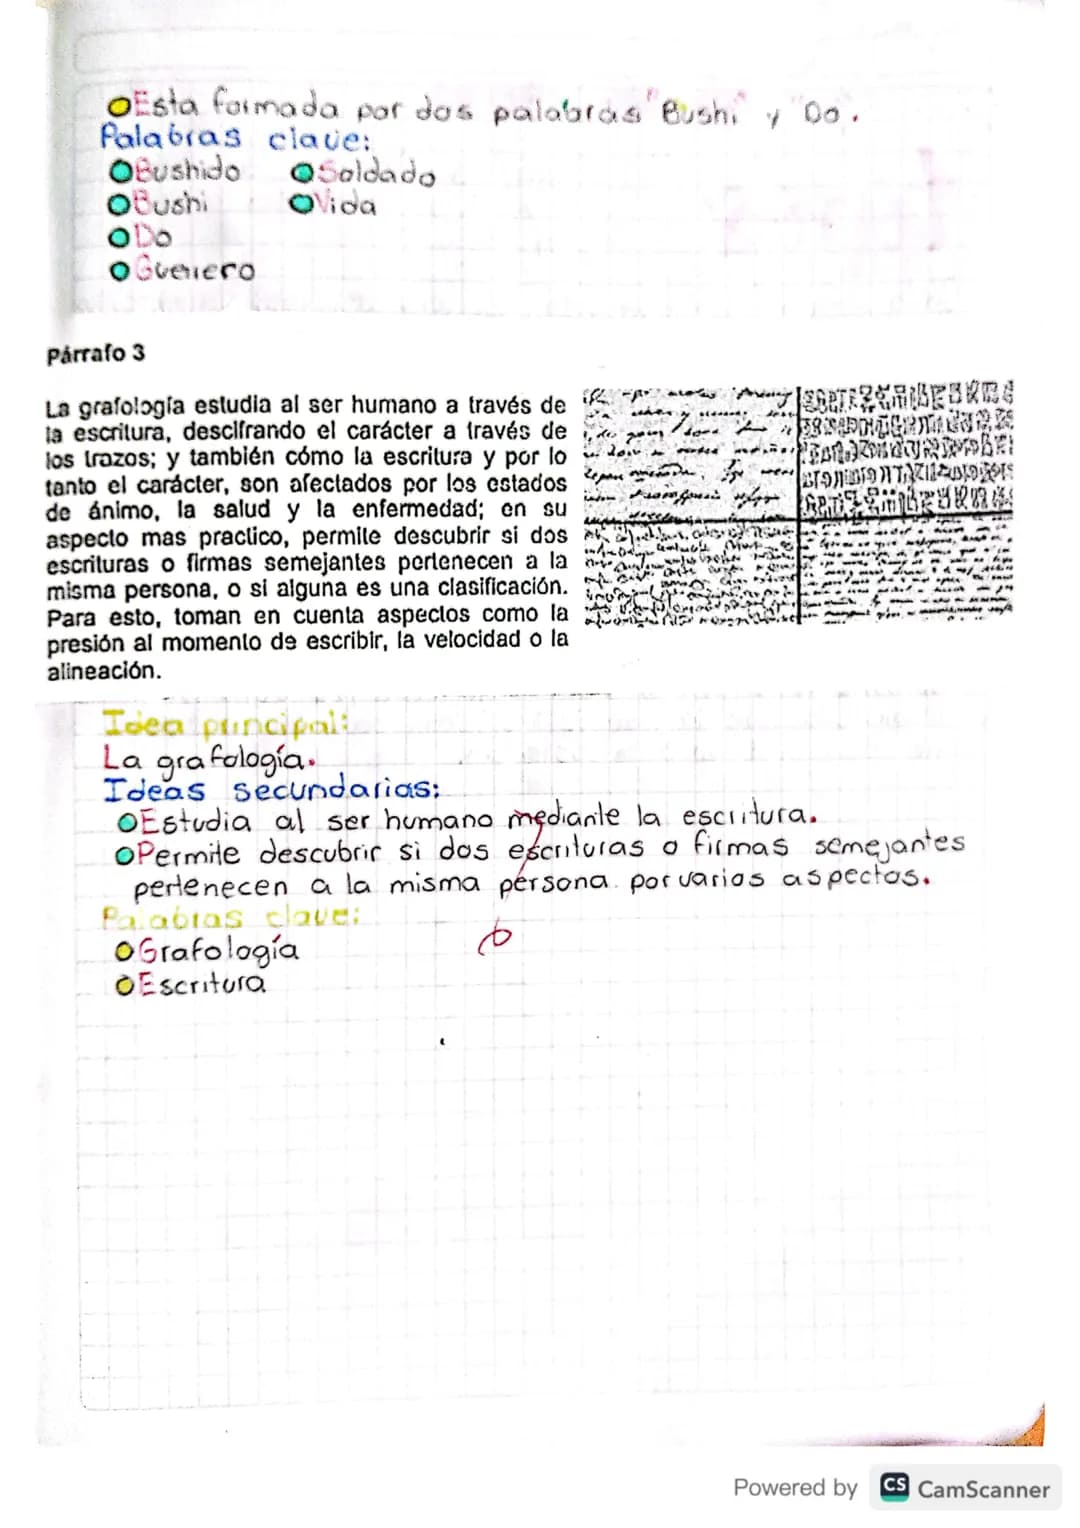 Esta formada por dos palabras "Bushi" y "Do".
Palabras clave:
Bushido Soldado
Bushi Vida
Do
Guerrero
Párrafo 3
La grafología estudia al ser humano a través de
la escritura, descifrando el carácter a través de
los trazos; y también cómo la escritura y por lo
tanto el carácter, son afectados por los estados
de ánimo, la salud y la enfermedad; en su
aspecto mas practico, permite descubrir si dos
escrituras o firmas semejantes pertenecen a la
misma persona, o si alguna es una clasificación.
Para esto, toman en cuenta aspectos como la
presión al momento de escribir, la velocidad o la
alineación.
Idea principal:
La grafología.
Ideas secundarias:
Estudia al ser humano mediante la escritura.
Permite descubrir si dos escrituras o firmas semejantes
pertenecen a la misma persona por varios aspectos.
Palabras clave:
Grafología
Escritura
Powered by CS CamScanner